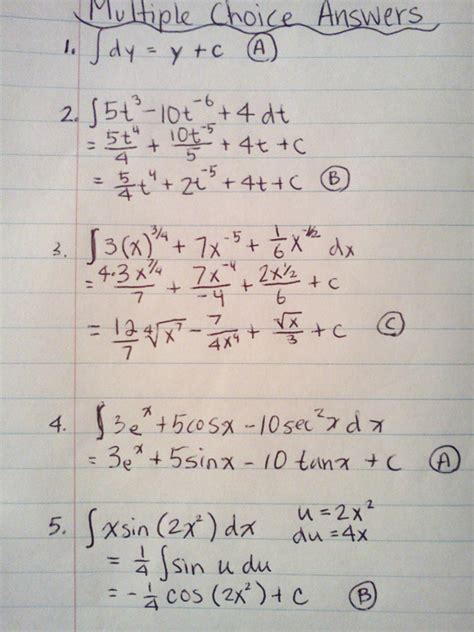 Multiple Choice Answers
1. ∫dy = y + c (A)
2. ∫5t³ - 10t⁻⁶ + 4 dt
= 5t⁴/4 + 10t⁻⁵/5 + 4t + C
= 5/4 t⁴ + 2t⁻⁵ + 4t + C (B)
3. ∫3(x)^3/4 + 7x⁻⁵ + 1/6 x^-1/2 dx
= 4·3x^7/4 / 7 + 7x⁻⁴/-4 + 2x^1/2 / 6 + c
= 12/7 ⁴√x⁷ - 7/4x⁴ + √x/3 + C (C)
4. ∫3eˣ + 5cosx - 10sec²x dx
= 3eˣ + 5sinx - 10 tanx + C (A)
5. ∫xsin(2x²) dx u = 2x²
du = 4x
= 1/4 ∫sin u du
= -1/4 cos(2x²) + C (B)